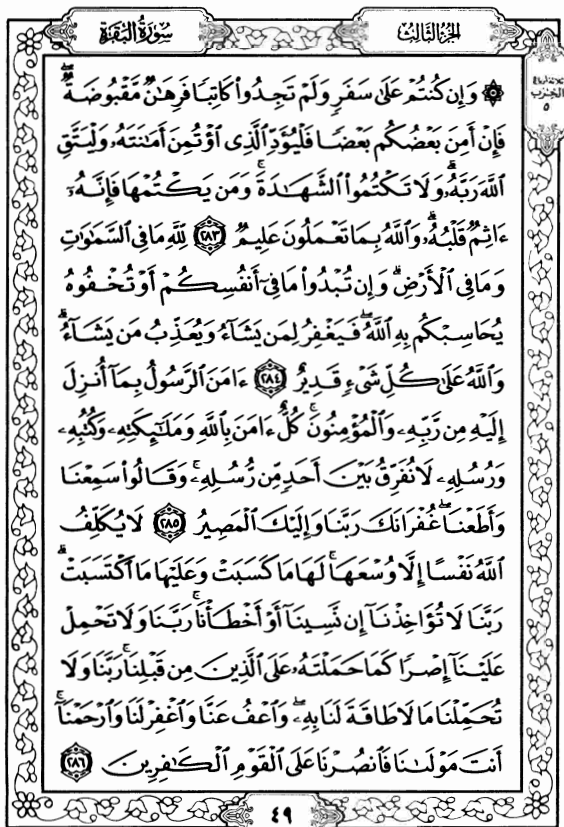 سُورَةُ البَقَرَةِ
الجُزْءُ الثَّالِثُ
ثلاثة أرباع
الحزب
٥
۞ وَإِن كُنتُمْ عَلَىٰ سَفَرٍ وَلَمْ تَجِدُوا۟ كَاتِبًا فَرِهَٰنٌ مَّقْبُوضَةٌ ۖ
فَإِنْ أَمِنَ بَعْضُكُم بَعْضًا فَلْيُؤَدِّ ٱلَّذِى ٱؤْتُمِنَ أَمَٰنَتَهُۥ وَلْيَتَّقِ
ٱللَّهَ رَبَّهُۥ ۗ وَلَا تَكْتُمُوا۟ ٱلشَّهَٰدَةَ ۚ وَمَن يَكْتُمْهَا فَإِنَّهُۥٓ
ءَاثِمٌ قَلْبُهُۥ ۗ وَٱللَّهُ بِمَا تَعْمَلُونَ عَلِيمٌ ۝٢٨٣ لِّلَّهِ مَا فِى ٱلسَّمَٰوَٰتِ
وَمَا فِى ٱلْأَرْضِ ۗ وَإِن تُبْدُوا۟ مَا فِىٓ أَنفُسِكُمْ أَوْ تُخْفُوهُ
يُحَاسِبْكُم بِهِ ٱللَّهُ ۖ فَيَغْفِرُ لِمَن يَشَآءُ وَيُعَذِّبُ مَن يَشَآءُ ۗ
وَٱللَّهُ عَلَىٰ كُلِّ شَىْءٍ قَدِيرٌ ۝٢٨٤ ءَامَنَ ٱلرَّسُولُ بِمَآ أُنزِلَ
إِلَيْهِ مِن رَّبِّهِۦ وَٱلْمُؤْمِنُونَ ۚ كُلٌّ ءَامَنَ بِٱللَّهِ وَمَلَٰٓئِكَتِهِۦ وَكُتُبِهِۦ
وَرُسُلِهِۦ لَا نُفَرِّقُ بَيْنَ أَحَدٍ مِّن رُّسُلِهِۦ ۚ وَقَالُوا۟ سَمِعْنَا
وَأَطَعْنَا ۖ غُفْرَانَكَ رَبَّنَا وَإِلَيْكَ ٱلْمَصِيرُ ۝٢٨٥ لَا يُكَلِّفُ
ٱللَّهُ نَفْسًا إِلَّا وُسْعَهَا ۚ لَهَا مَا كَسَبَتْ وَعَلَيْهَا مَا ٱكْتَسَبَتْ ۗ
رَبَّنَا لَا تُؤَاخِذْنَآ إِن نَّسِينَآ أَوْ أَخْطَأْنَا ۚ رَبَّنَا وَلَا تَحْمِلْ
عَلَيْنَآ إِصْرًا كَمَا حَمَلْتَهُۥ عَلَى ٱلَّذِينَ مِن قَبْلِنَا ۚ رَبَّنَا وَلَا
تُحَمِّلْنَا مَا لَا طَاقَةَ لَنَا بِهِۦ ۖ وَٱعْفُ عَنَّا وَٱغْفِرْ لَنَا وَٱرْحَمْنَآ ۚ
أَنتَ مَوْلَىٰنَا فَٱنصُرْنَا عَلَى ٱلْقَوْمِ ٱلْكَٰفِرِينَ ۝٢٨٦
٤٩